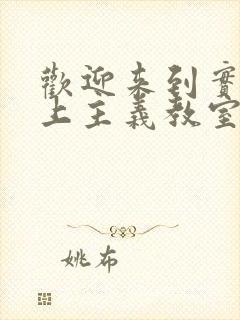 歡迎來到實
上主義教室
姚布